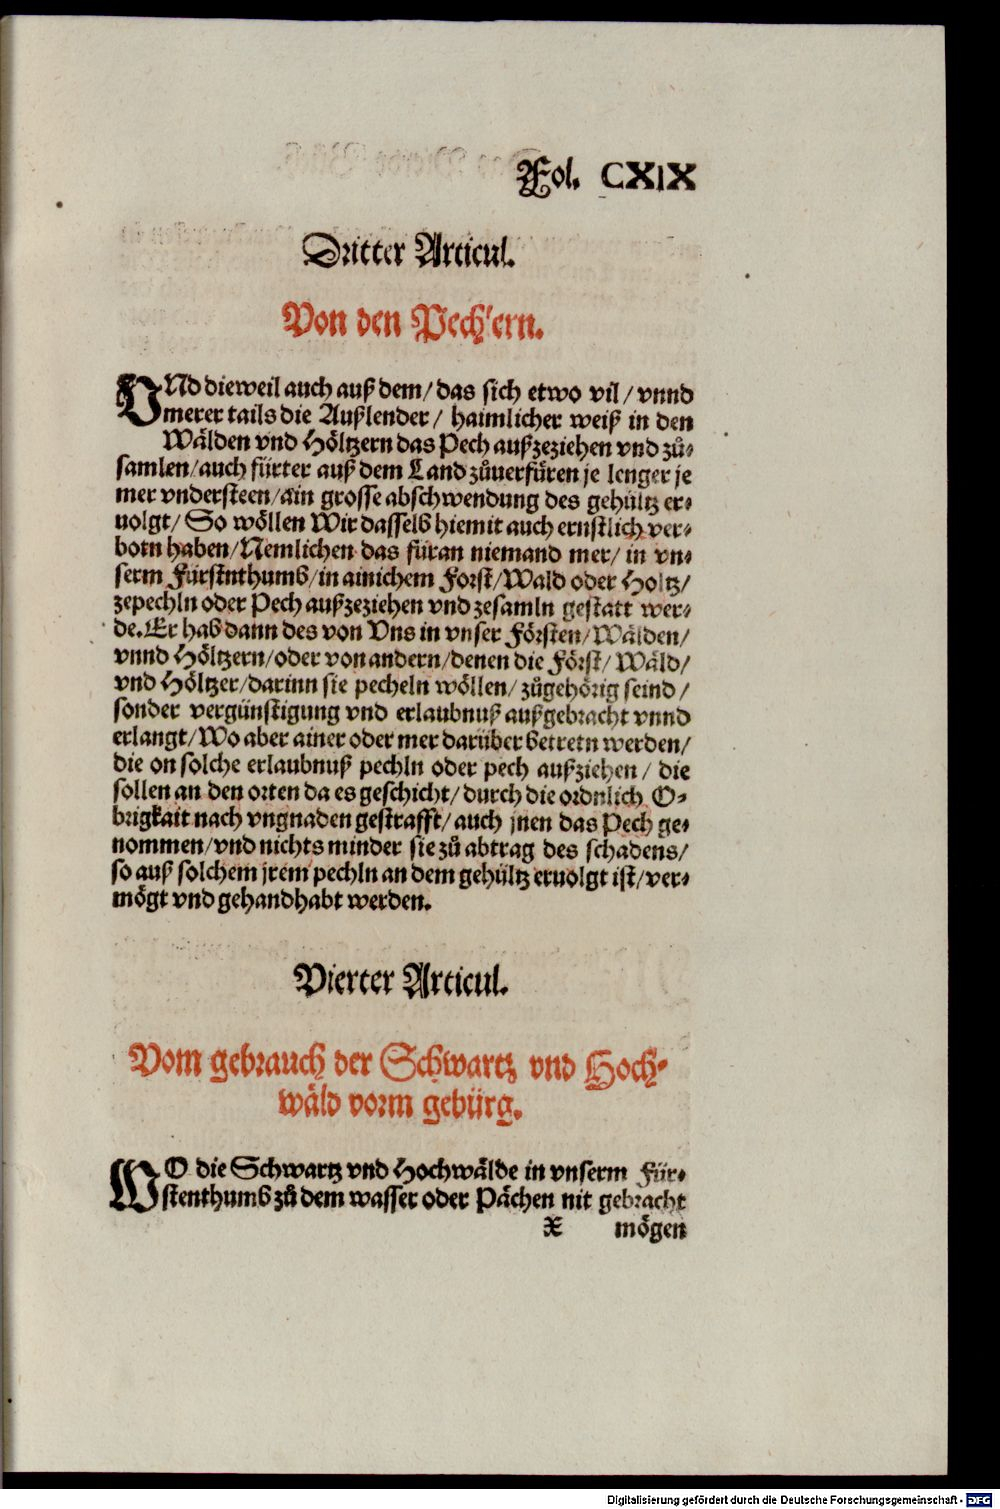 Fol. CXIX
Dritter Articul.
Von den Pechlern.
VNd dieweil auch auß dem/ das sich etwo vil/ vnnd
merer tails die Außlender/ haimlicher weiß in den
Wälden vnd Höltzern das Pech außzeziehen vnd zů-
samlen/ auch fürter auß dem Land zůuerfüren je lenger je
mer vndersteen/ ain grosse abschwendung des gehültz er-
uolgt/ So wöllen Wir dasselb hiemit auch ernstlich ver-
botn haben/ Nemlichen das füran niemand mer/ in vn-
serm Fürstnthumb/ in ainichem Forst/ Wald oder Holtz/
zepechln oder Pech außzeziehen vnd zesamln gestatt wer-
de. Er hab dann des von Vns in vnser Försten/ Wälden/
vnnd Höltzern/ oder von andern/ denen die Först/ Wäld/
vnd Höltzer/ darinn sie pecheln wöllen/ zůgehörig seind/
sonder vergünstigung vnd erlaubnuß außgebracht vnnd
erlangt/ Wo aber ainer oder mer darüber betretn werden/
die on solche erlaubnuß pechln oder pech außziehen/ die
sollen an den orten da es geschicht/ durch die ordnlich O-
brigkait nach vngnaden gestrafft/ auch jnen das Pech ge-
nommen/ vnd nichts minder sie zů abtrag des schadens/
so auß solchem jrem pechln an dem gehültz eruolgt ist/ ver-
mögt vnd gehandhabt werden.
Vierter Articul.
Vom gebrauch der Schwartz vnd Hoch-
wäld vorm gebürg.
WO die Schwartz vnd Hochwälde in vnserm Für-
stenthumb zů dem wasser oder Pächen nit gebracht
X mögen
Digitalisierung gefördert durch die Deutsche Forschungsgemeinschaft - DFG